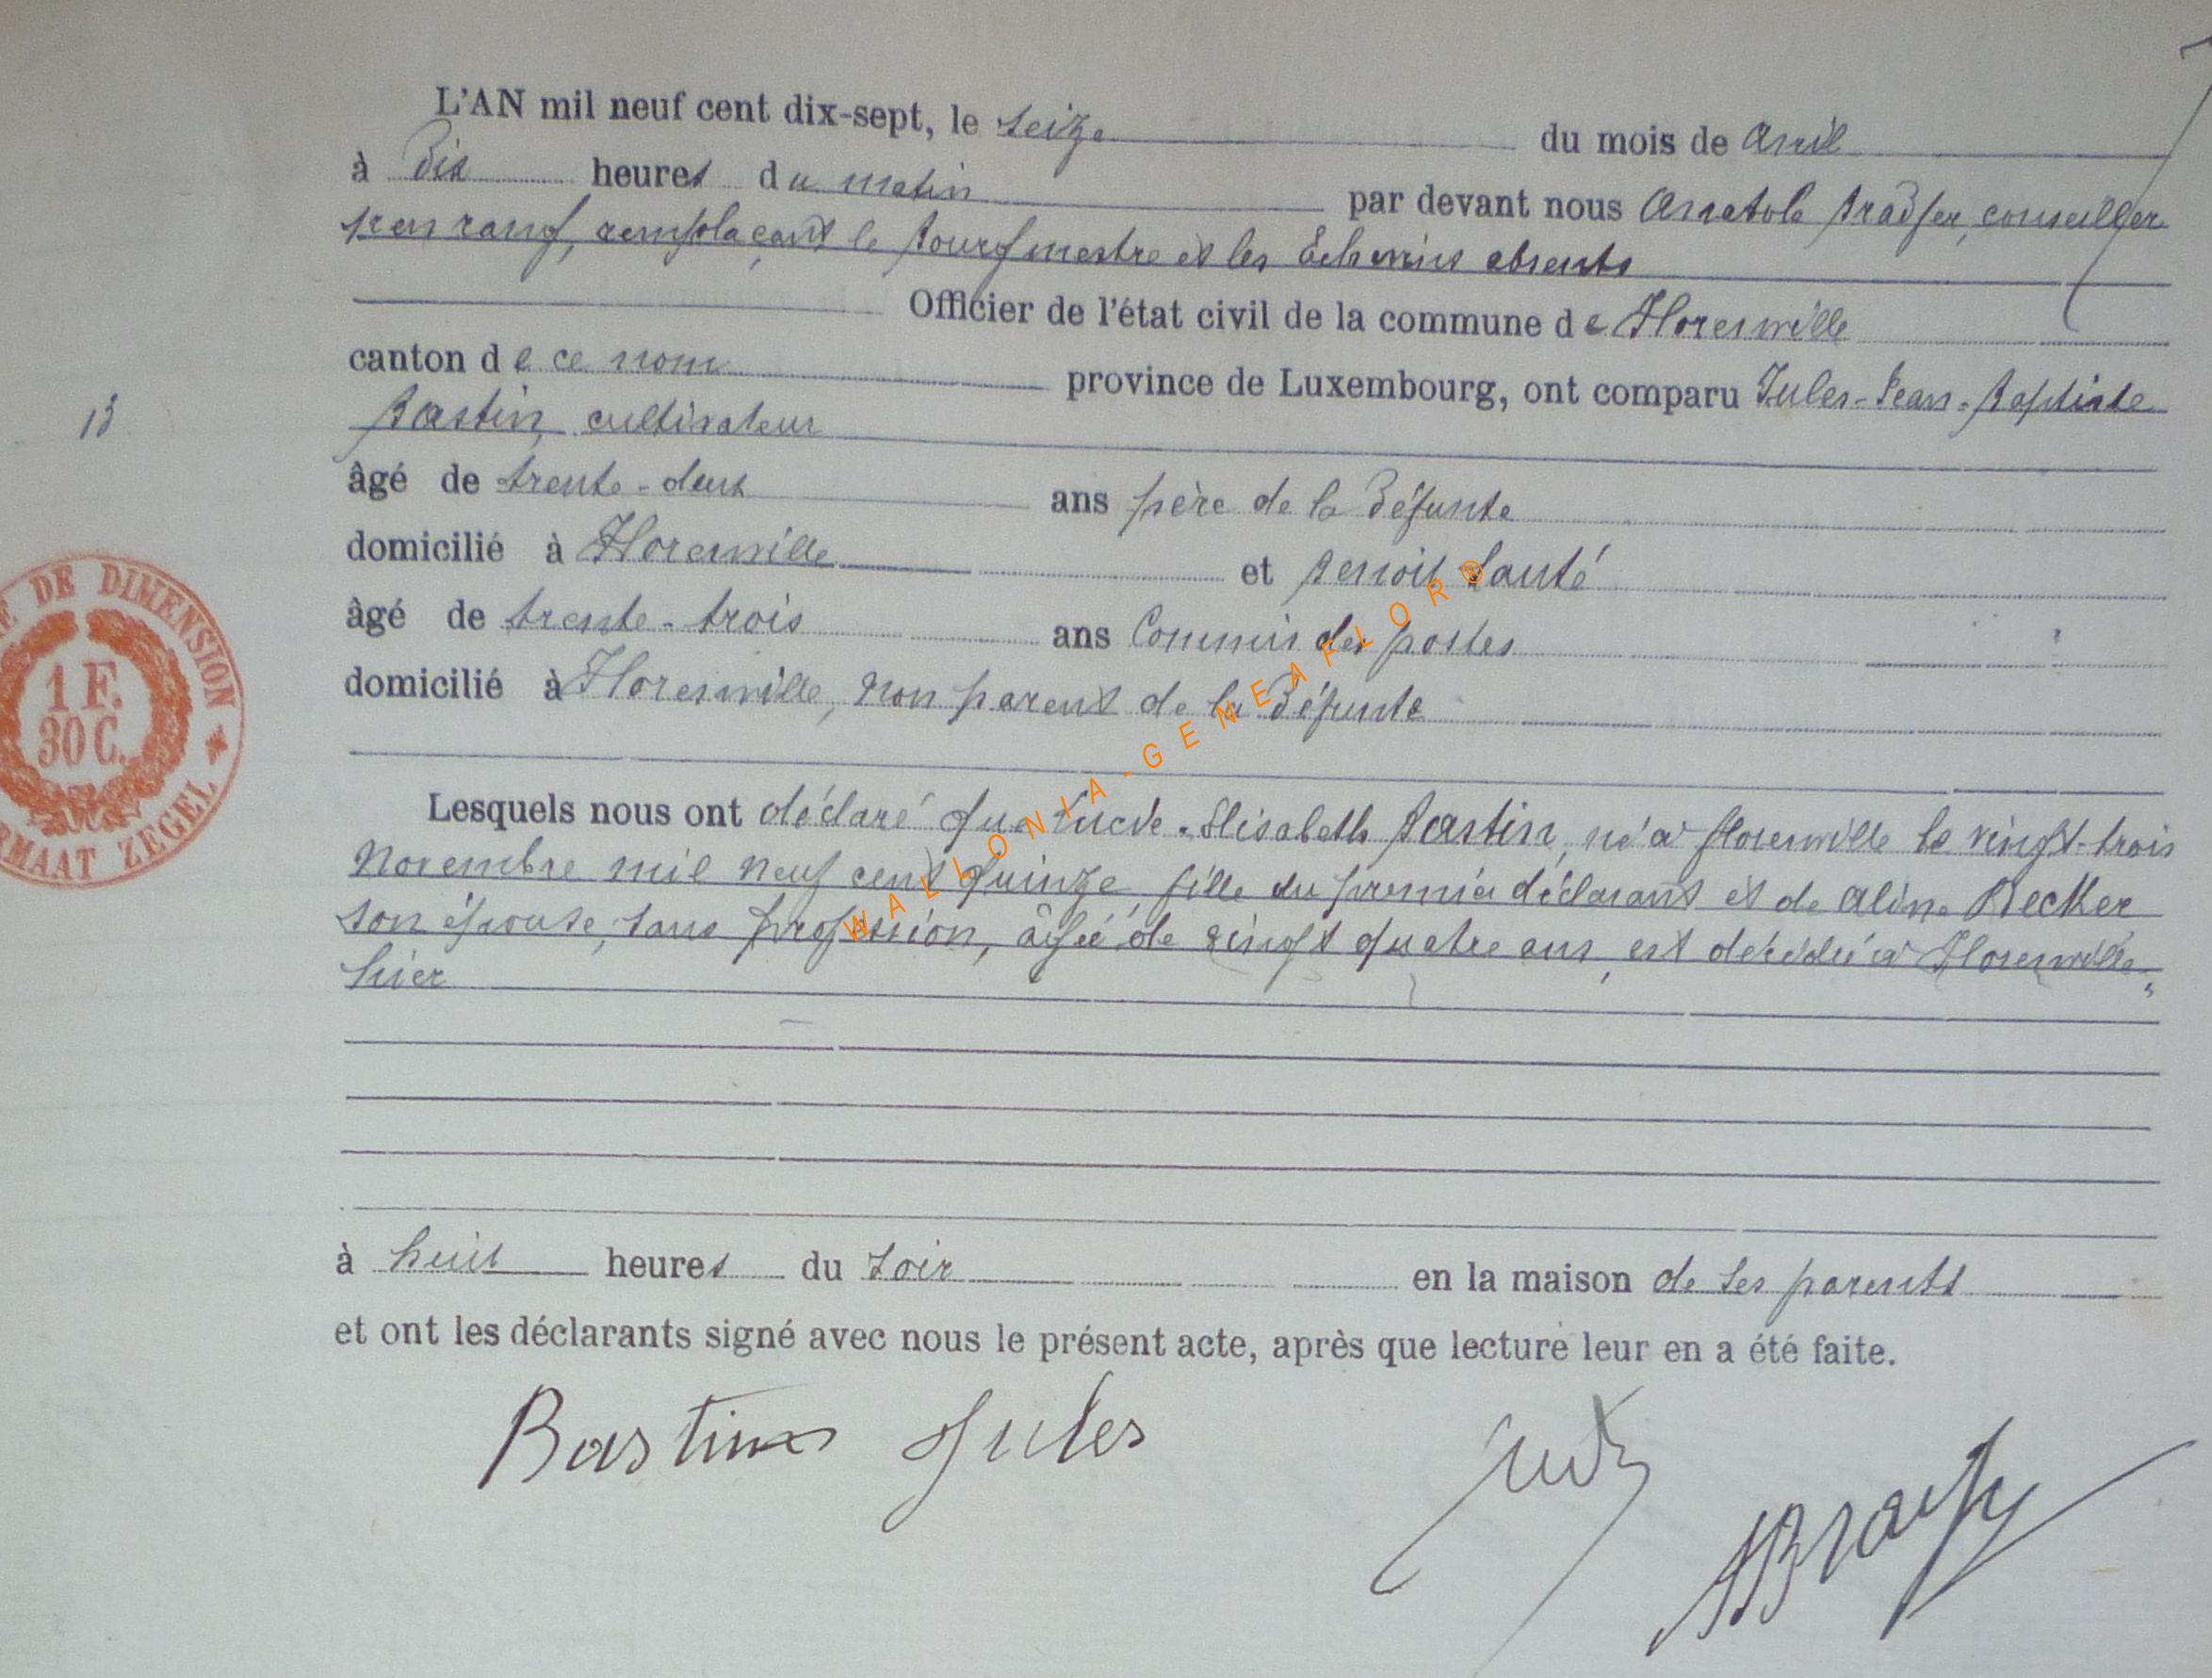 L'AN mil neuf cent dix-sept, le seize du mois de Avril
à Dix heures du matin par devant nous Anatole conseiller
1er en rang, remplaçant le Bourgmestre et les Échevins absents
Officier de l'état civil de la commune de Florenville
canton de ce nom province de Luxembourg, ont comparu Jules-Jean-Baptiste
13
Bastin, cultivateur
âgé de trente-deux ans père de la Défunte
domicilié à Florenville et Benoit
âgé de trente-trois ans Commis des postes
domicilié à Florenville, non parent de la Défunte
DE DIMENSION
1 F.
30 C.
RMAAT ZEGEL
WALLONIA-GENEAFLOR®
Lesquels nous ont déclaré que Lucie-Elisabeth Bastin, né à Florenville le vingt-trois
Novembre mil neuf cent quinze, fille du premier déclarant et de Aline Becker
son épouse, sans profession, âgée de vingt quatre ans, est décédée à Florenville,
hier
à huit heures du soir en la maison de ses parents
et ont les déclarants signé avec nous le présent acte, après que lecture leur en a été faite.
Bastin Jules